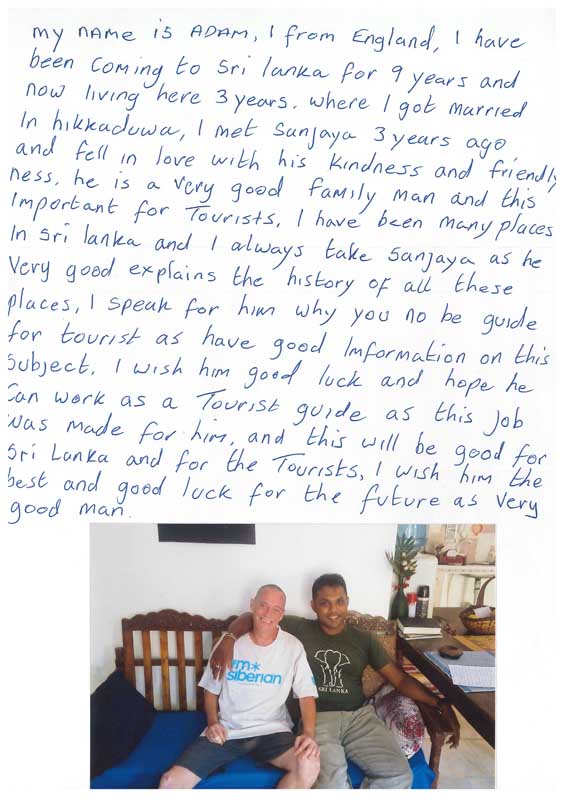 my name is ADAM, I from England, I have
been coming to Sri lanka for 9 years and
now living here 3 years. where I got married
In hikkaduwa, I met Sanjaya 3 years ago
and fell in love with his kindness and friendly
ness. he is a very good family man and this
Important for Tourists, I have been many places
In Sri lanka and I always take Sanjaya as he
Very good explains the history of all these
places, I speak for him why you no be guide
for tourist as have good Imformation on this
Subject. I wish him good luck and hope he
Can work as a Tourist guide as this job
was made for him, and this will be good for
Sri Lanka and for the Tourists, I wish him the
best and good luck for the future as very
good man.
siberian
SRI LANKA